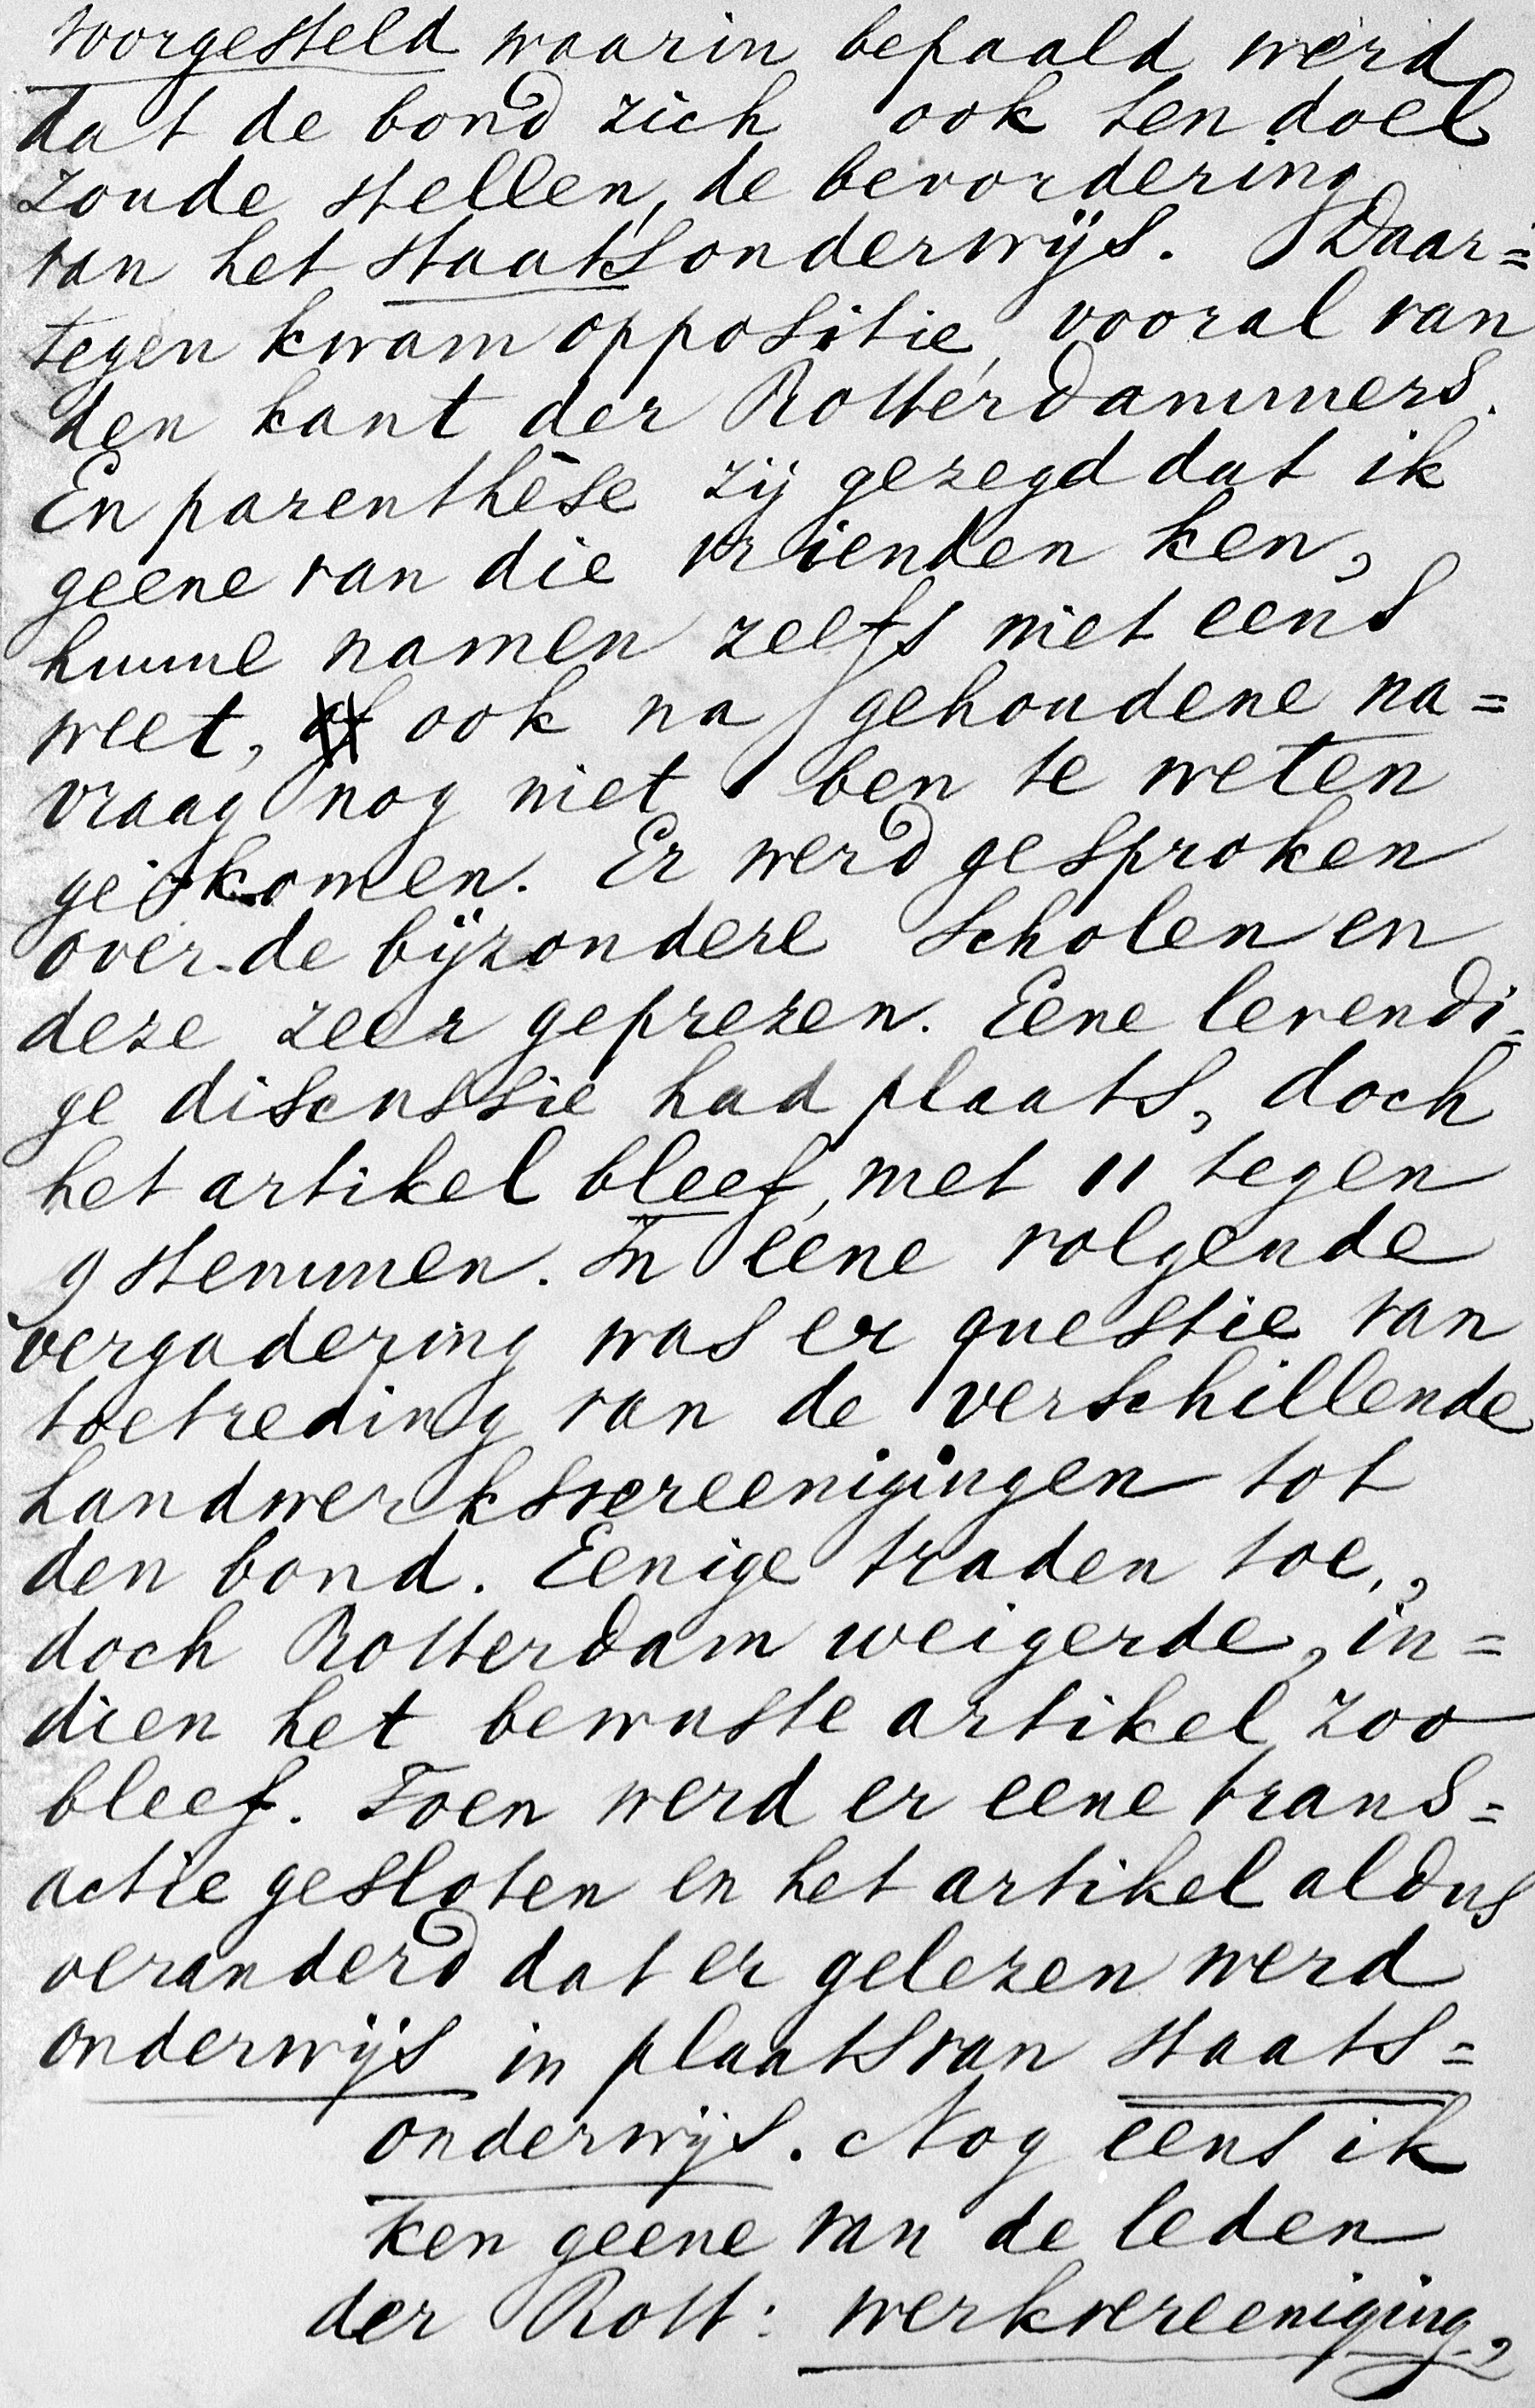 voorgesteld waarin bepaald werd
dat de bond zich ook ten doel
zoude stellen, de bevordering
van het staatsonderwijs. Daar=
tegen kwam oppositie, vooral van
den kant der Rotterdammers.
En parenthèse zij gezegd dat ik
geene van die vrienden ken,
hunne namen zelfs niet eens
weet, ook na gehoudene na=
vraag nog niet ben te weten
gekomen. Er werd gesproken
over de bijzondere scholen en
deze zeer geprezen. Eene levendi=
ge discussie had plaats, doch
het artikel bleef, met 11 tegen
9 stemmen. In eene volgende
vergadering was er questie van
toetreding van de verschillende
handwerksvereenigingen tot
den bond. Eenige traden toe,
doch Rotterdam weigerde, in=
dien het bewuste artikel zoo
bleef. Toen werd er eene trans=
actie gesloten en het artikel aldus
veranderd dat er gelezen werd
onderwijs in plaats van staats=
onderwijs. Nog eens ik
ken geene van de leden
der Rott: werkvereeniging,